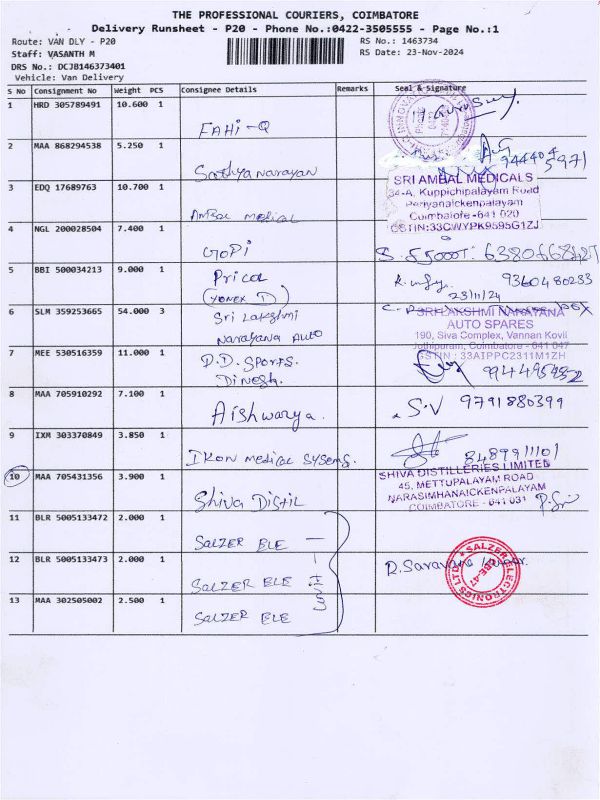 THE PROFESSIONAL COURIERS, COIMBATORE
Delivery Runsheet - P20 - Phone No.:0422-3505555 - Page No.:1
Route: VAN DLY - P20
RS No.: 1463734
Staff: VASANTH M
RS Date: 23-Nov-2024
DRS No.: DCJB146373401
Vehicle: Van Delivery
S No Consignment No Weight PCS Consignee Details Remarks Seal & Signature
1 HRD 305789491 10.600 1
FAHi-Q
2 MAA 868294538 5.250 1
Sathyanarayan
3 EDQ 17689763 10.700 1
Ambal medical
SRI AMBAL MEDICALS
34-A, Kuppichipalayam Road
Periyanaickenpalayam
Coimbatore-641 020
GSTIN:33CWYPK9595G1ZJ
4 NGL 200028504 7.400 1
GOPi
5 BBI 500034213 9.000 1
Pricol
(YONEX D)
9360480233
23/11/24
6 SLM 359253665 54.000 3
Sri Lakshmi
Narayana Auto
SRI LAKSHMI NARAYANA
AUTO SPARES
190, Siva Complex, Vannan Kovil
Jothipuram, Coimbatore - 641 047
GSTIN : 33AIPPC2311M1ZH
7 MEE 530516359 11.000 1
D.D. SPORTS.
Dinesh.
8 MAA 705910292 7.100 1
Aishwarya.
S.V 9791880399
9 IXM 303370849 3.850 1
IKON medical SYSemS.
8489911101
10 MAA 705431356 3.900 1
Shiva Distil
SHIVA DISTILLERIES LIMITED
45, METTUPALAYAM ROAD
NARASIMHANAICKENPALAYAM
COIMBATORE - 641 031
11 BLR 5005133472 2.000 1
SALZER ELE
12 BLR 5005133473 2.000 1
SALZER ELE
R. Saravana
SALZER ELECTRONICS LTD.
CBE-47
13 MAA 302505002 2.500 1
SALZER ELE